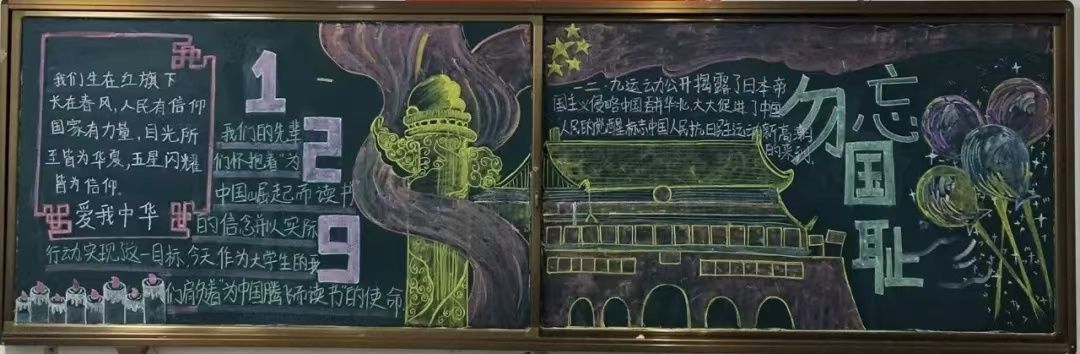 我们生在红旗下
长在春风,人民有信仰
国家有力量,目光所
至皆为华夏,五星闪耀
皆为信仰.
爱我中华
1
2
9
我们的先辈
们怀抱着“为
中国崛起而读书”
的信念并以实际
行动实现这一目标,今天,作为大学生的我
们肩负着“为中国腾飞而读书”的使命
一二·九运动公开揭露了日本帝
国主义侵略中国吞并华北,大大促进了中国
人民的觉醒,标志中国人民抗日救亡运动新高潮
的来到.
勿忘
国
耻